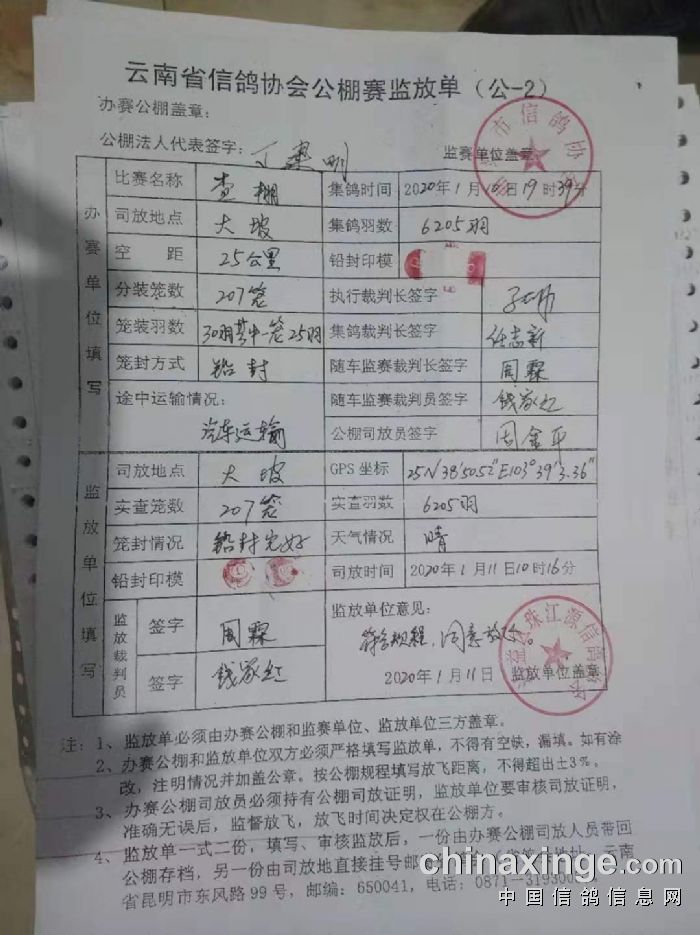 云南省信鸽协会公棚赛监放单（公-2）
办赛公棚盖章：
公棚法人代表签字： 监赛单位盖章
市信鸽协
办赛单位填写
比赛名称 查棚 集鸽时间 2020年1月 日19时39分
司放地点 大坡 集鸽羽数 6205羽
空 距 25公里 铅封印模
分装笼数 207笼 执行裁判长签字
笼装羽数 30羽其中一笼25羽 集鸽裁判长签字 任志新
笼封方式 铅封 随车监赛裁判长签字 周霖
途中运输情况： 随车监赛裁判员签字 钱家红
汽车运输 公棚司放员签字 周金平
监放单位填写
司放地点 大坡 GPS坐标 25N38'50.52"E103°39'3.36"
实查笼数 207笼 实查羽数 6205羽
笼封情况 铅封完好 天气情况 晴
铅封印模 司放时间 2020年1月11日10时16分
监放裁判员 签字 周霖 监放单位意见：
符合规程，同意放飞。
签字 钱家红 2020年1月11日 监放单位盖章
珠江源信鸽
注：1、监放单必须由办赛公棚和监赛单位、监放单位三方盖章。
2、办赛公棚和监放单位双方必须严格填写监放单，不得有空缺，漏填。如有涂
改，注明情况并加盖公章。按公棚规程填写放飞距离，不得超出±3%。
3、办赛公棚司放员必须持有公棚司放证明，监放单位要审核司放证明，
准确无误后，监督放飞，放飞时间决定权在公棚方。
4、监放单一式二份，填写、审核监放后，一份由办赛公棚司放人员带回
公棚存档，另一份由司放地直接挂号邮 云南
省昆明市东风路99号，邮编：650041，电话：0871-319300
chinaxinge.com
中国信鸽信息网